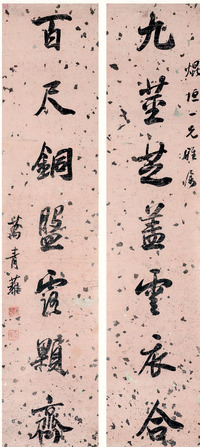 焜垣一兄雅屬
九莖芝蓋雲衣合
百尺銅盤露顆齊
萬青藜